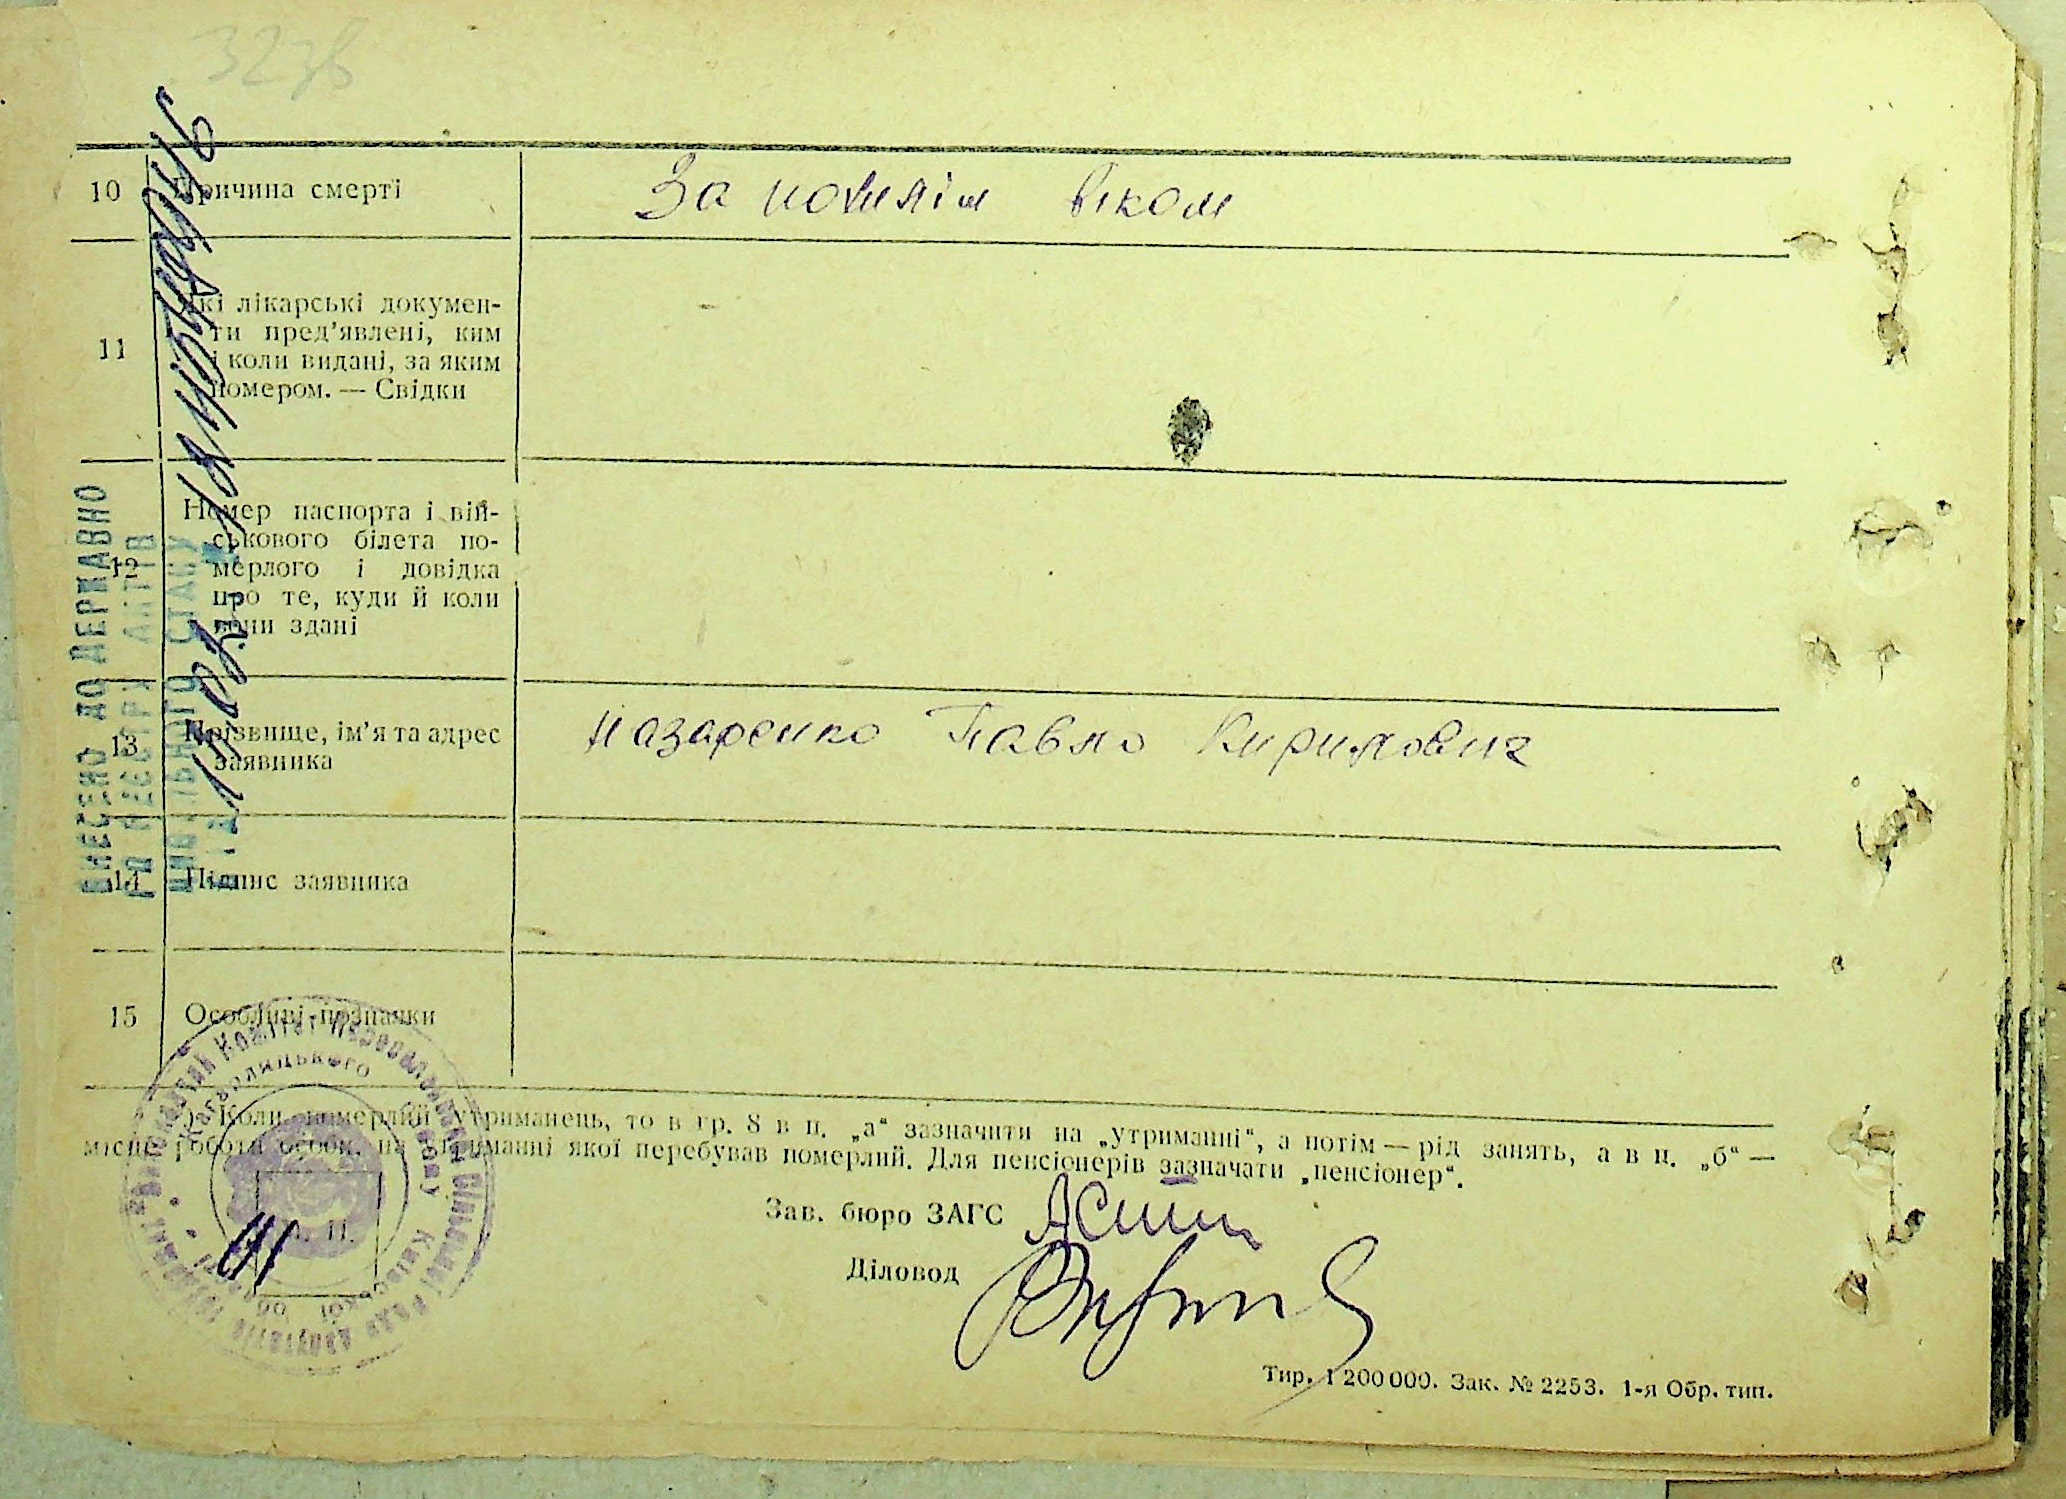 323в
10 Причина смерті За похилім віком
11 Які лікарські докумен-
ти пред’явлені, ким
і коли видані, за яким
номером. — Свідки
12 Номер паспорта і вій-
ськового білета по-
мерлого і довідка
про те, куди й коли
вони здані
13 Прізвище, ім’я та адрес
заявника
Назаренко Павло Кирилович
14 Підпис заявника
15 Особливі позначки
Коли померлий утриманець, то в гр. 8 в п. „а“ зазначити на „утриманні“, а потім — рід занять, а в п. „б“ —
місце роботи особи, на утриманні якої перебував померлий. Для пенсіонерів зазначати „пенсіонер“.
Зав. бюро ЗАГС
Діловод
М. П.
Тир. 1 200 000. Зак. № 2253. 1-я Обр. тип.
ВНЕСЕНО ДО ДЕРЖАВНО
ГО РЕЄСТРУ АКТІВ
ЦИВІЛЬНОГО СТАНУ
Виконавчий Комітет
Кагарлицького
Київської